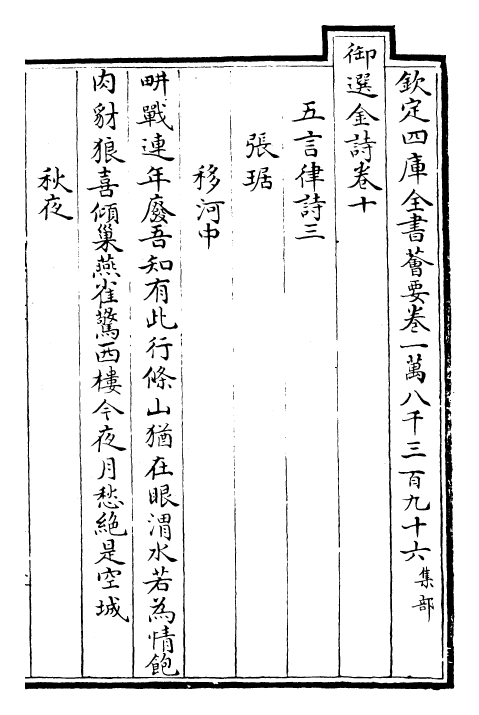 欽定四庫全書薈要卷一萬八千三百九十六集部
御選金詩卷十
五言律詩三
張琚
移河中
畊戰連年廢吾知有此行條山猶在眼渭水若為情飽
肉豺狼喜傾巢燕雀驚西樓今夜月愁絕是空城
秋夜